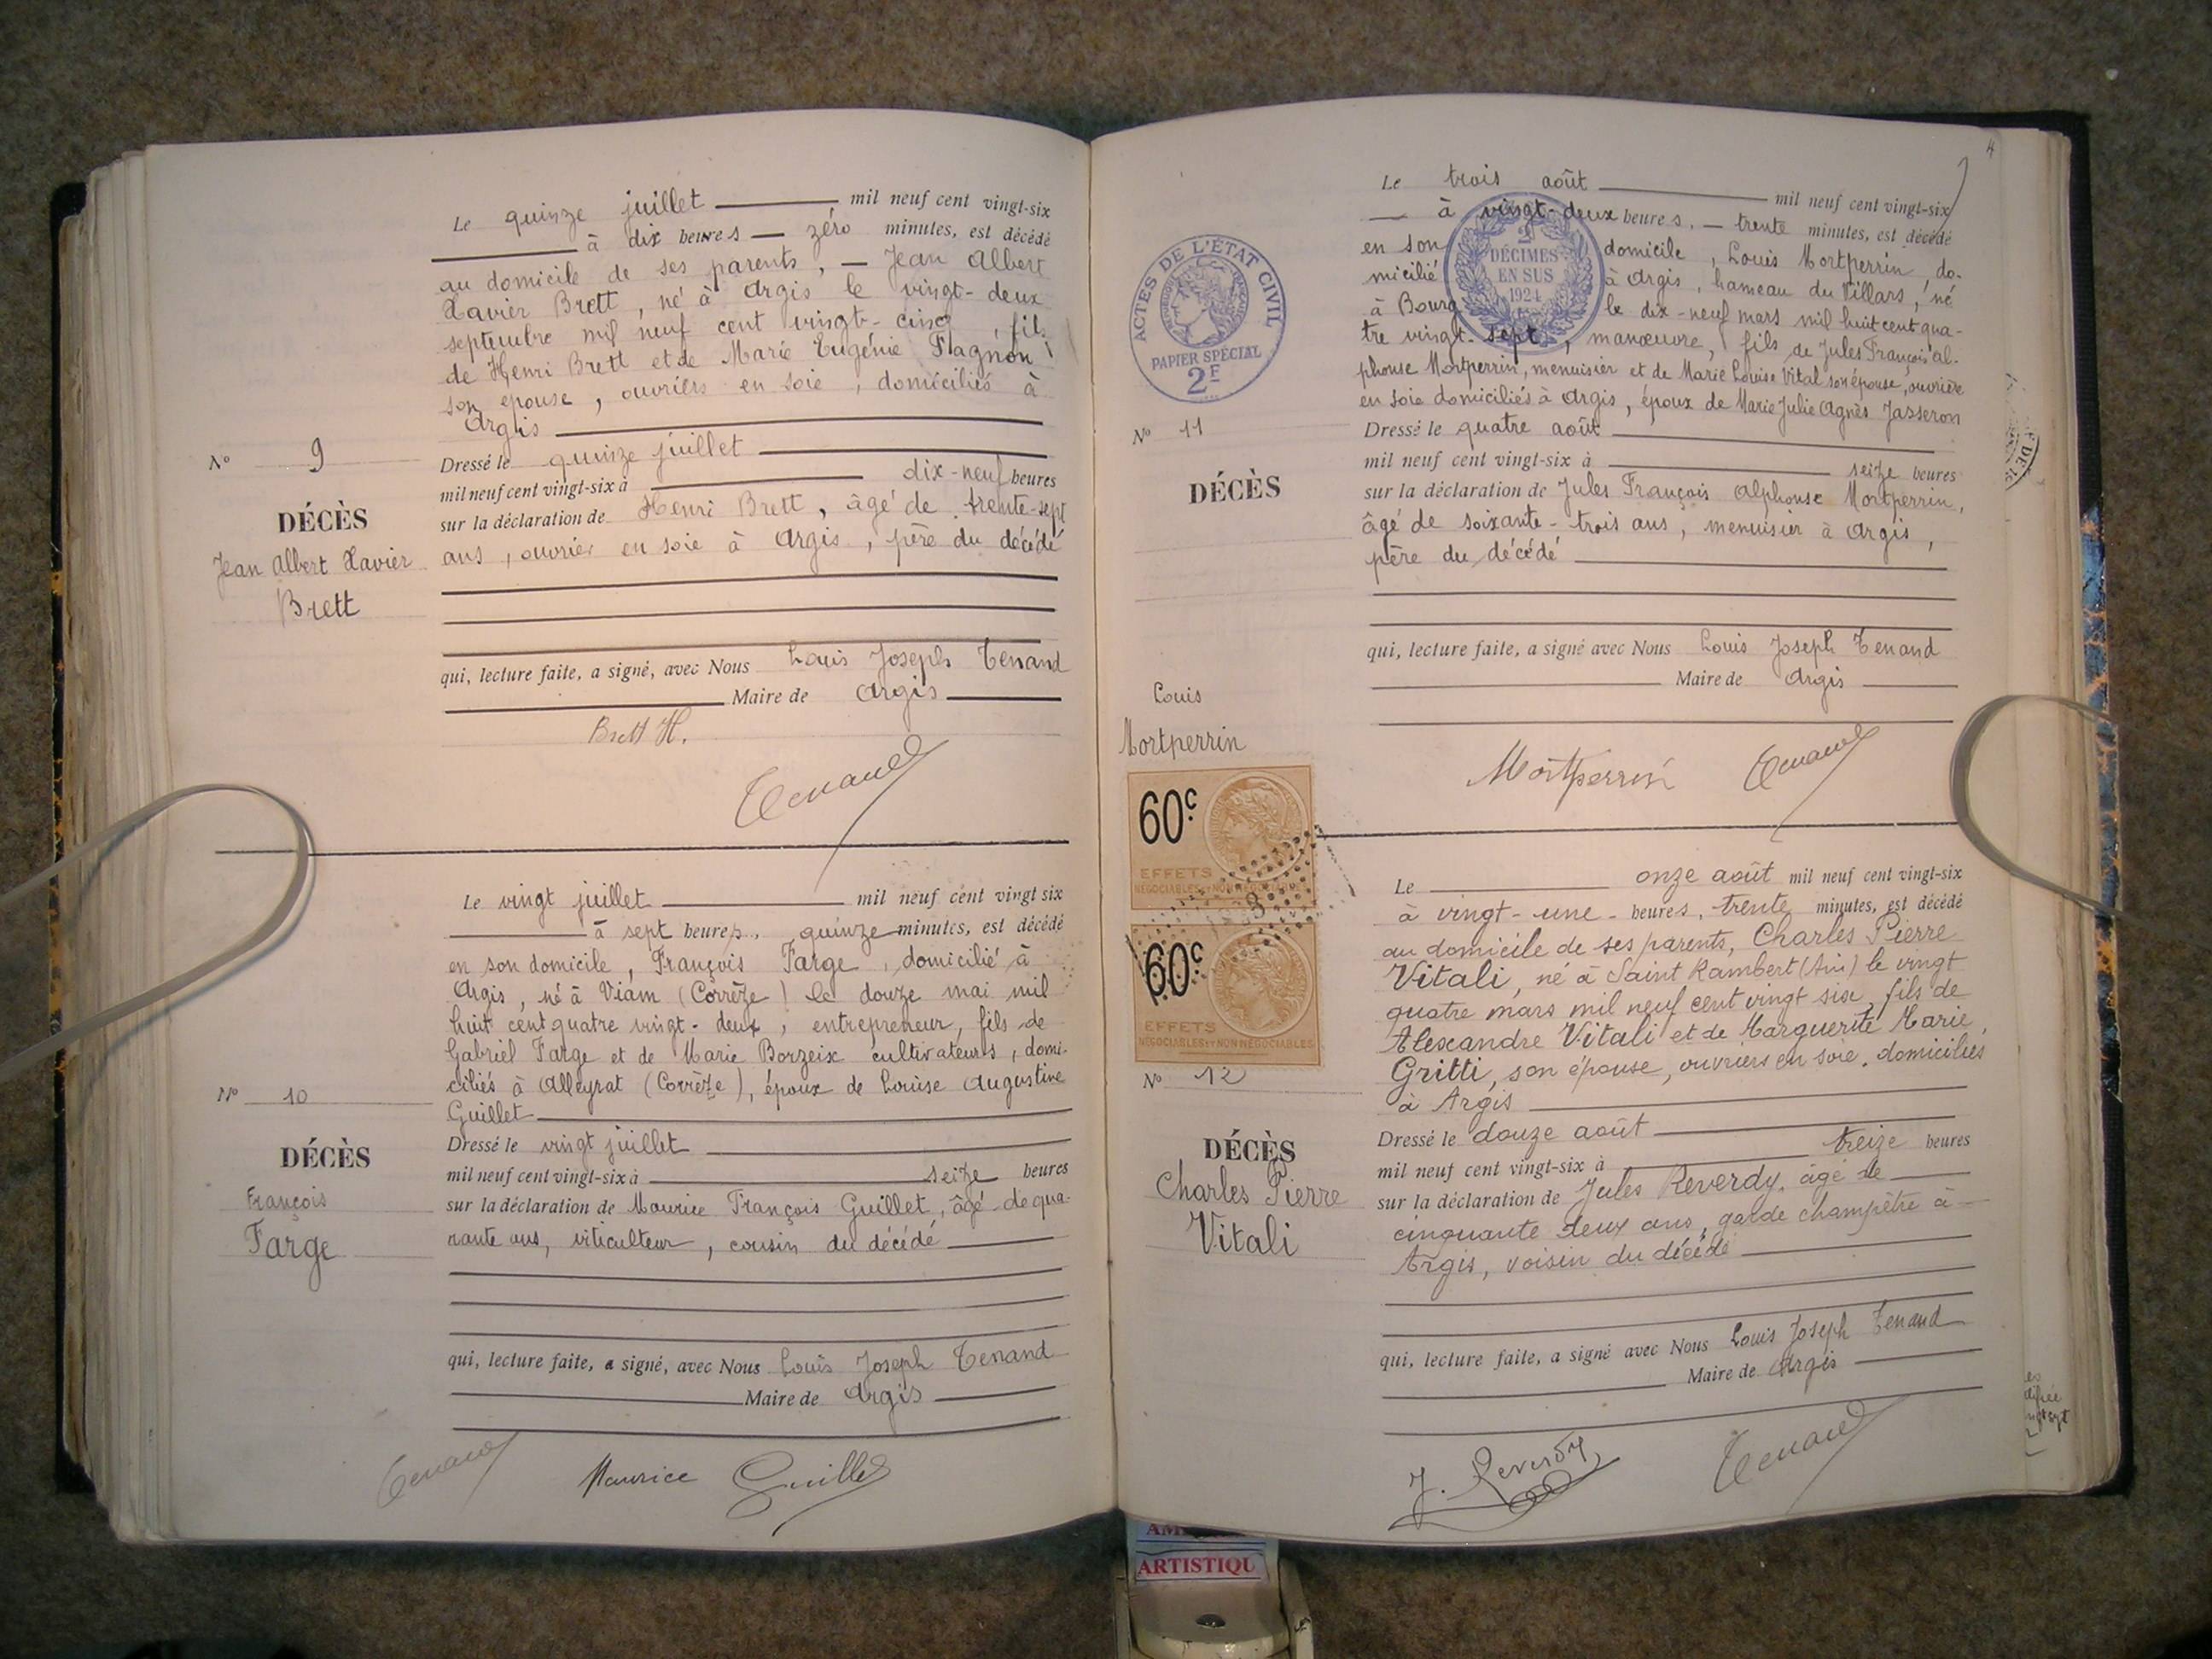 Le quinze juillet mil neuf cent vingt-six
à dix heures — zéro minutes, est décédé
au domicile de ses parents, — Jean Albert
Xavier Brett, né à Argis le vingt-deux
septembre mil neuf cent vingt-cinq, fils
de Henri Brett et de Marie Eugénie Flagnon
son épouse, ouvriers en soie, domiciliés à
Argis
N° 9
DÉCÈS
Jean Albert Xavier
Brett
Dressé le quinze juillet
mil neuf cent vingt-six à dix-neuf heures
sur la déclaration de Henri Brett, âgé de trente-sept
ans, ouvrier en soie à Argis, père du décédé
qui, lecture faite, a signé, avec Nous Louis Joseph Tenand
Maire de Argis
Brett H.
Tenand
Le vingt juillet mil neuf cent vingt six
à sept heures, quinze minutes, est décédé
en son domicile, François Farge, domicilié à
Argis, né à Viam (Corrèze) le douze mai mil
huit cent quatre vingt-deux, entrepreneur, fils de
Gabriel Farge et de Marie Borzeix cultivateurs, domi-
ciliés à Alleyrat (Corrèze), époux de Louise Augustine
Guillet
N° 10
DÉCÈS
François
Farge
Dressé le vingt juillet
mil neuf cent vingt-six à seize heures
sur la déclaration de Maurice François Guillet, âgé de qua-
rante ans, viticulteur, cousin du décédé
qui, lecture faite, a signé, avec Nous Louis Joseph Tenand
Maire de Argis
Tenand Maurice Guillet
4
Le trois août mil neuf cent vingt-six
— à vingt-deux heures, — trente minutes, est décédé
en son domicile, Louis Mortperrin, do-
micilié à Argis, hameau du Villars, né
à Bourg le dix-neuf mars mil huit cent qua-
tre vingt-sept, manœuvre, fils de Jules François Al-
phonse Mortperrin, menuisier et de Marie Louise Vital son épouse, ouvrière
en soie domiciliés à Argis, époux de Marie Julie Agnès Jasseron
2
DÉCIMES
EN SUS
1924
ACTES DE L'ÉTAT CIVIL
PAPIER SPÉCIAL
2F
N° 11
DÉCÈS
Louis
Mortperrin
Dressé le quatre août
mil neuf cent vingt-six à seize heures
sur la déclaration de Jules François Alphonse Mortperrin,
âgé de soixante-trois ans, menuisier à Argis,
père du décédé
qui, lecture faite, a signé avec Nous Louis Joseph Tenand
Maire de Argis
Mortperrin Tenand
60c
EFFETS
NÉGOCIABLES ET NON NÉGOCIABLES
60c
EFFETS
NÉGOCIABLES ET NON NÉGOCIABLES
Le onze août mil neuf cent vingt-six
à vingt-une heures, trente minutes, est décédé
au domicile de ses parents, Charles Pierre
Vitali, né à Saint Rambert (Ain) le vingt
quatre mars mil neuf cent vingt six, fils de
Alexandre Vitali et de Marguerite Marie
Gritti, son épouse, ouvriers en soie, domiciliés
à Argis
N° 12
DÉCÈS
Charles Pierre
Vitali
Dressé le douze août
mil neuf cent vingt-six à treize heures
sur la déclaration de Jules Reverdy, âgé de
cinquante deux ans, garde champêtre à
Argis, voisin du décédé
qui, lecture faite, a signé avec Nous Louis Joseph Tenand
Maire de Argis
J. Reverdy Tenand
ARTISTIQU